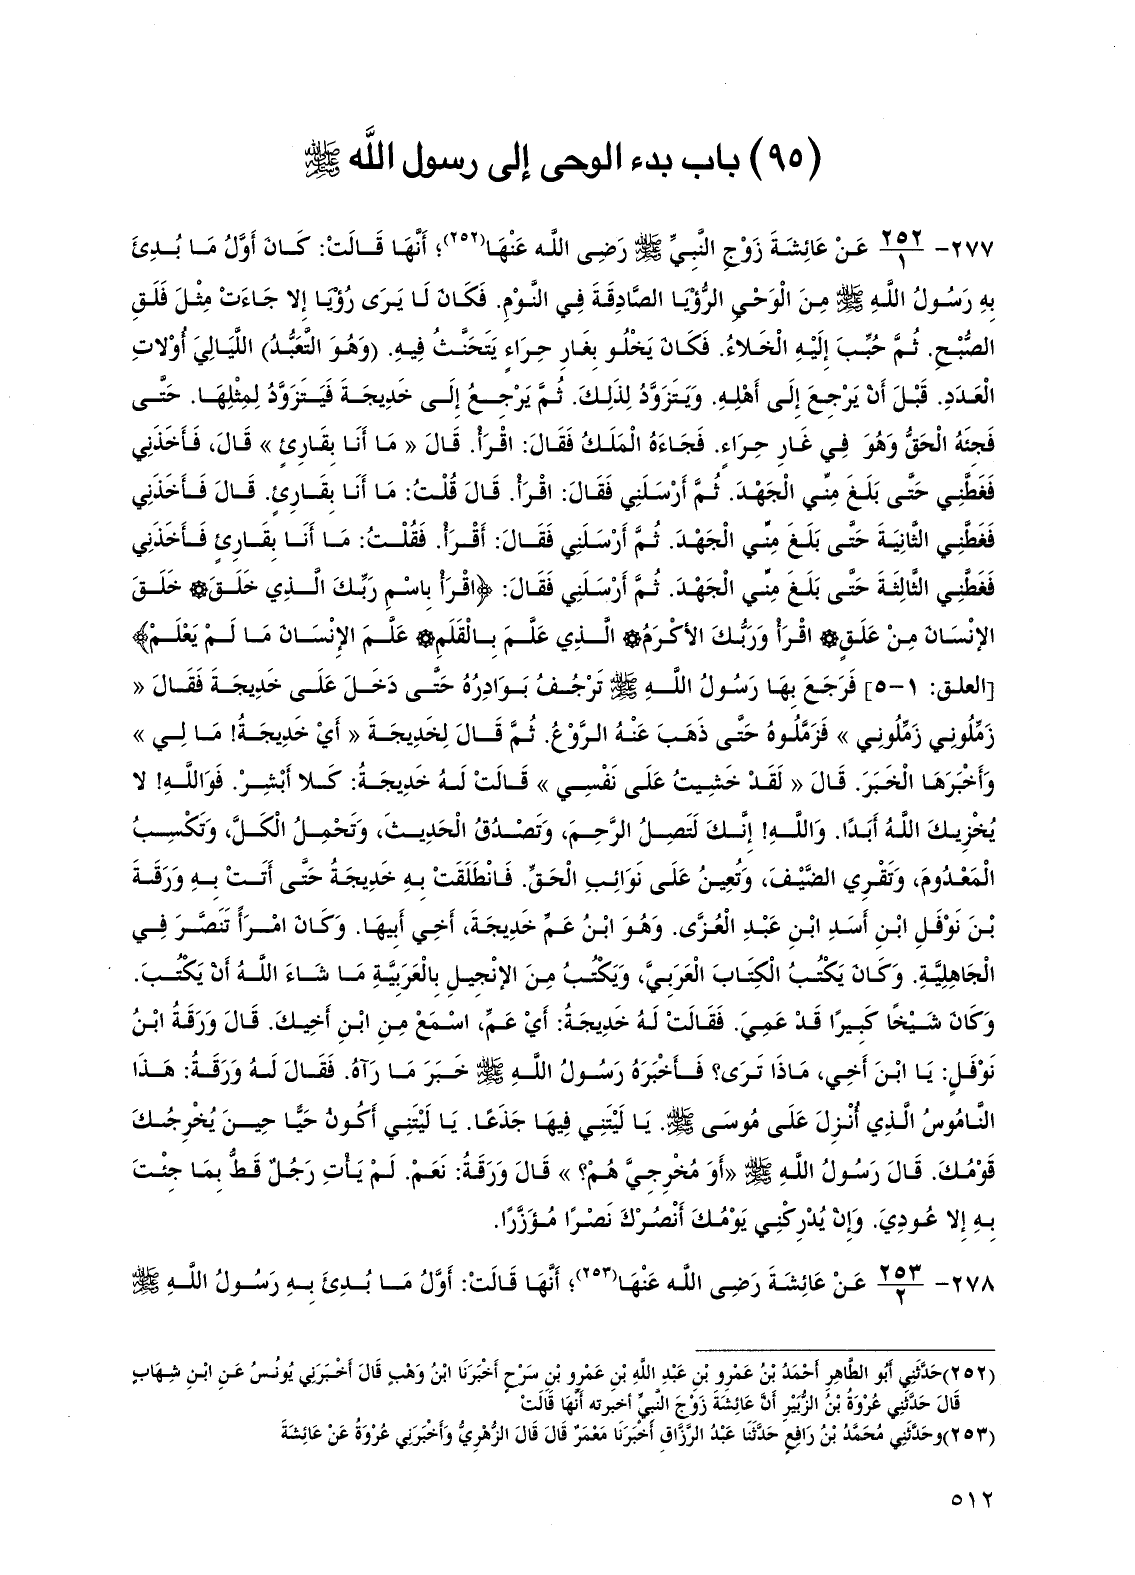 (٩٥) باب بدء الوحى إلى رسول اللَّه ﷺ
٢٧٧- ٢٥٢/١ عَنْ عَائِشَةَ زَوْجِ النَّبِيِّ ﷺ رَضِى اللَّه عَنْهَا(٢٥٢)؛ أَنَّهَا قَالَتْ: كَانَ أَوَّلُ مَا بُدِئَ
بِهِ رَسُولُ اللَّهِ ﷺ مِنَ الْوَحْيِ الرُّؤْيَا الصَّادِقَةَ فِي النَّوْمِ. فَكَانَ لَا يَرَى رُؤْيَا إلا جَاءَتْ مِثْلَ فَلَقِ
الصُّبْحِ. ثُمَّ حُبِّبَ إِلَيْهِ الْخَلاءُ. فَكَانَ يَخْلُو بِغَارِ حِرَاءٍ يَتَحَنَّثُ فِيهِ. (وَهُوَ التَّعَبُّدُ) اللَّيَالِيَ أُوْلاتِ
الْعَدَدِ. قَبْلَ أَنْ يَرْجِعَ إِلَى أَهْلِهِ. وَيَتَزَوَّدُ لِذَلِكَ. ثُمَّ يَرْجِعُ إِلَى خَدِيجَةَ فَيَتَزَوَّدُ لِمِثْلِهَا. حَتَّى
فَجِئَهُ الْحَقُّ وَهُوَ فِي غَارِ حِرَاءٍ. فَجَاءَهُ الْمَلَكُ فَقَالَ: اقْرَأْ. قَالَ « مَا أَنَا بِقَارِئٍ » قَالَ، فَأَخَذَنِي
فَغَطَّنِي حَتَّى بَلَغَ مِنِّي الْجَهْدَ. ثُمَّ أَرْسَلَنِي فَقَالَ: اقْرَأْ. قَالَ قُلْتُ: مَا أَنَا بِقَارِئٍ. قَالَ فَأَخَذَنِي
فَغَطَّنِي الثَّانِيَةَ حَتَّى بَلَغَ مِنِّي الْجَهْدَ. ثُمَّ أَرْسَلَنِي فَقَالَ: أقْرَأْ. فَقُلْتُ: مَا أَنَا بِقَارِئٍ فَأَخَذَنِي
فَغَطَّنِي الثَّالِثَةَ حَتَّى بَلَغَ مِنِّي الْجَهْدَ. ثُمَّ أَرْسَلَنِي فَقَالَ: ﴿اقْرَأْ بِاسْمِ رَبِّكَ الَّذِي خَلَقَ۞ خَلَقَ
الإنْسَانَ مِنْ عَلَقٍ۞ اقْرَأْ وَرَبُّكَ الأَكْرَمُ۞ الَّذِي عَلَّمَ بِالْقَلَمِ۞ عَلَّمَ الإنْسَانَ مَا لَمْ يَعْلَمْ﴾
[العلق: ١-٥] فَرَجَعَ بِهَا رَسُولُ اللَّهِ ﷺ تَرْجُفُ بَوَادِرُهُ حَتَّى دَخَلَ عَلَى خَدِيجَةَ فَقَالَ «
زَمِّلُونِي زَمِّلُونِي » فَزَمَّلُوهُ حَتَّى ذَهَبَ عَنْهُ الرَّوْعُ. ثُمَّ قَالَ لِخَدِيجَةَ « أَيْ خَدِيجَةُ! مَا لِي »
وَأَخْبَرَهَا الْخَبَرَ. قَالَ « لَقَدْ خَشِيتُ عَلَى نَفْسِي » قَالَتْ لَهُ خَدِيجَةُ: كَلا أَبْشِرْ. فَوَاللَّهِ! لا
يُخْزِيكَ اللَّهُ أَبَدًا. وَاللَّهِ! إِنَّكَ لَتَصِلُ الرَّحِمَ، وَتَصْدُقُ الْحَدِيثَ، وَتَحْمِلُ الْكَلَّ، وَتَكْسِبُ
الْمَعْدُومَ، وَتَقْرِي الضَّيْفَ، وَتُعِينُ عَلَى نَوَائِبِ الْحَقِّ. فَانْطَلَقَتْ بِهِ خَدِيجَةُ حَتَّى أَتَتْ بِهِ وَرَقَةَ
بْنَ نَوْفَلِ ابْنِ أَسَدِ ابْنِ عَبْدِ الْعُزَّى. وَهُوَ ابْنُ عَمِّ خَدِيجَةَ، أَخِي أَبِيهَا. وَكَانَ امْرَأً تَنَصَّرَ فِي
الْجَاهِلِيَّةِ. وَكَانَ يَكْتُبُ الْكِتَابَ الْعَرَبِيَّ، وَيَكْتُبُ مِنَ الإنْجِيلِ بِالْعَرَبِيَّةِ مَا شَاءَ اللَّهُ أَنْ يَكْتُبَ.
وَكَانَ شَيْخًا كَبِيرًا قَدْ عَمِيَ. فَقَالَتْ لَهُ خَدِيجَةُ: أَيْ عَمِّ، اسْمَعْ مِنِ ابْنِ أَخِيكَ. قَالَ وَرَقَةُ ابْنُ
نَوْفَلٍ: يَا ابْنَ أَخِي، مَاذَا تَرَى؟ فَأَخْبَرَهُ رَسُولُ اللَّهِ ﷺ خَبَرَ مَا رَآهُ. فَقَالَ لَهُ وَرَقَةُ: هَذَا
النَّامُوسُ الَّذِي أُنْزِلَ عَلَى مُوسَى ﷺ. يَا لَيْتَنِي فِيهَا جَذَعًا. يَا لَيْتَنِي أَكُونُ حَيًّا حِينَ يُخْرِجُكَ
قَوْمُكَ. قَالَ رَسُولُ اللَّهِ ﷺ «أَوَ مُخْرِجِيَّ هُمْ؟ » قَالَ وَرَقَةُ: نَعَمْ. لَمْ يَأْتِ رَجُلٌ قَطُّ بِمَا جِئْتَ
بِهِ إلا عُودِيَ. وَإنْ يُدْرِكْنِي يَوْمُكَ أَنْصُرْكَ نَصْرًا مُؤَزَّرًا.
٢٧٨- ٢٥٣/٢ عَنْ عَائِشَةَ رَضِى اللَّه عَنْهَا(٢٥٣)؛ أَنَّهَا قَالَتْ: أَوَّلُ مَا بُدِئَ بِهِ رَسُولُ اللَّهِ ﷺ
(٢٥٢)حَدَّثَنِي أَبُو الطَّاهِرِ أَحْمَدُ بْنُ عَمْرِو بْنِ عَبْدِ اللَّهِ بْنِ عَمْرِو بْنِ سَرْحٍ أَخْبَرَنَا ابْنُ وَهْبٍ قَالَ أَخْبَرَنِي يُونُسُ عَنِ ابْنِ شِهَابٍ
قَالَ حَدَّثَنِي عُرْوَةُ بْنُ الزُّبَيْرِ أَنَّ عَائِشَةَ زَوْجَ النَّبِيِّ أخبرته أَنَّهَا قَالَتْ
(٢٥٣)وحَدَّثَنِي مُحَمَّدُ بْنُ رَافِعٍ حَدَّثَنَا عَبْدُ الرَّزَّاقِ أَخْبَرَنَا مَعْمَرٌ قَالَ قَالَ الزُّهْرِيُّ وَأَخْبَرَنِي عُرْوَةُ عَنْ عَائِشَةَ
٥١٢